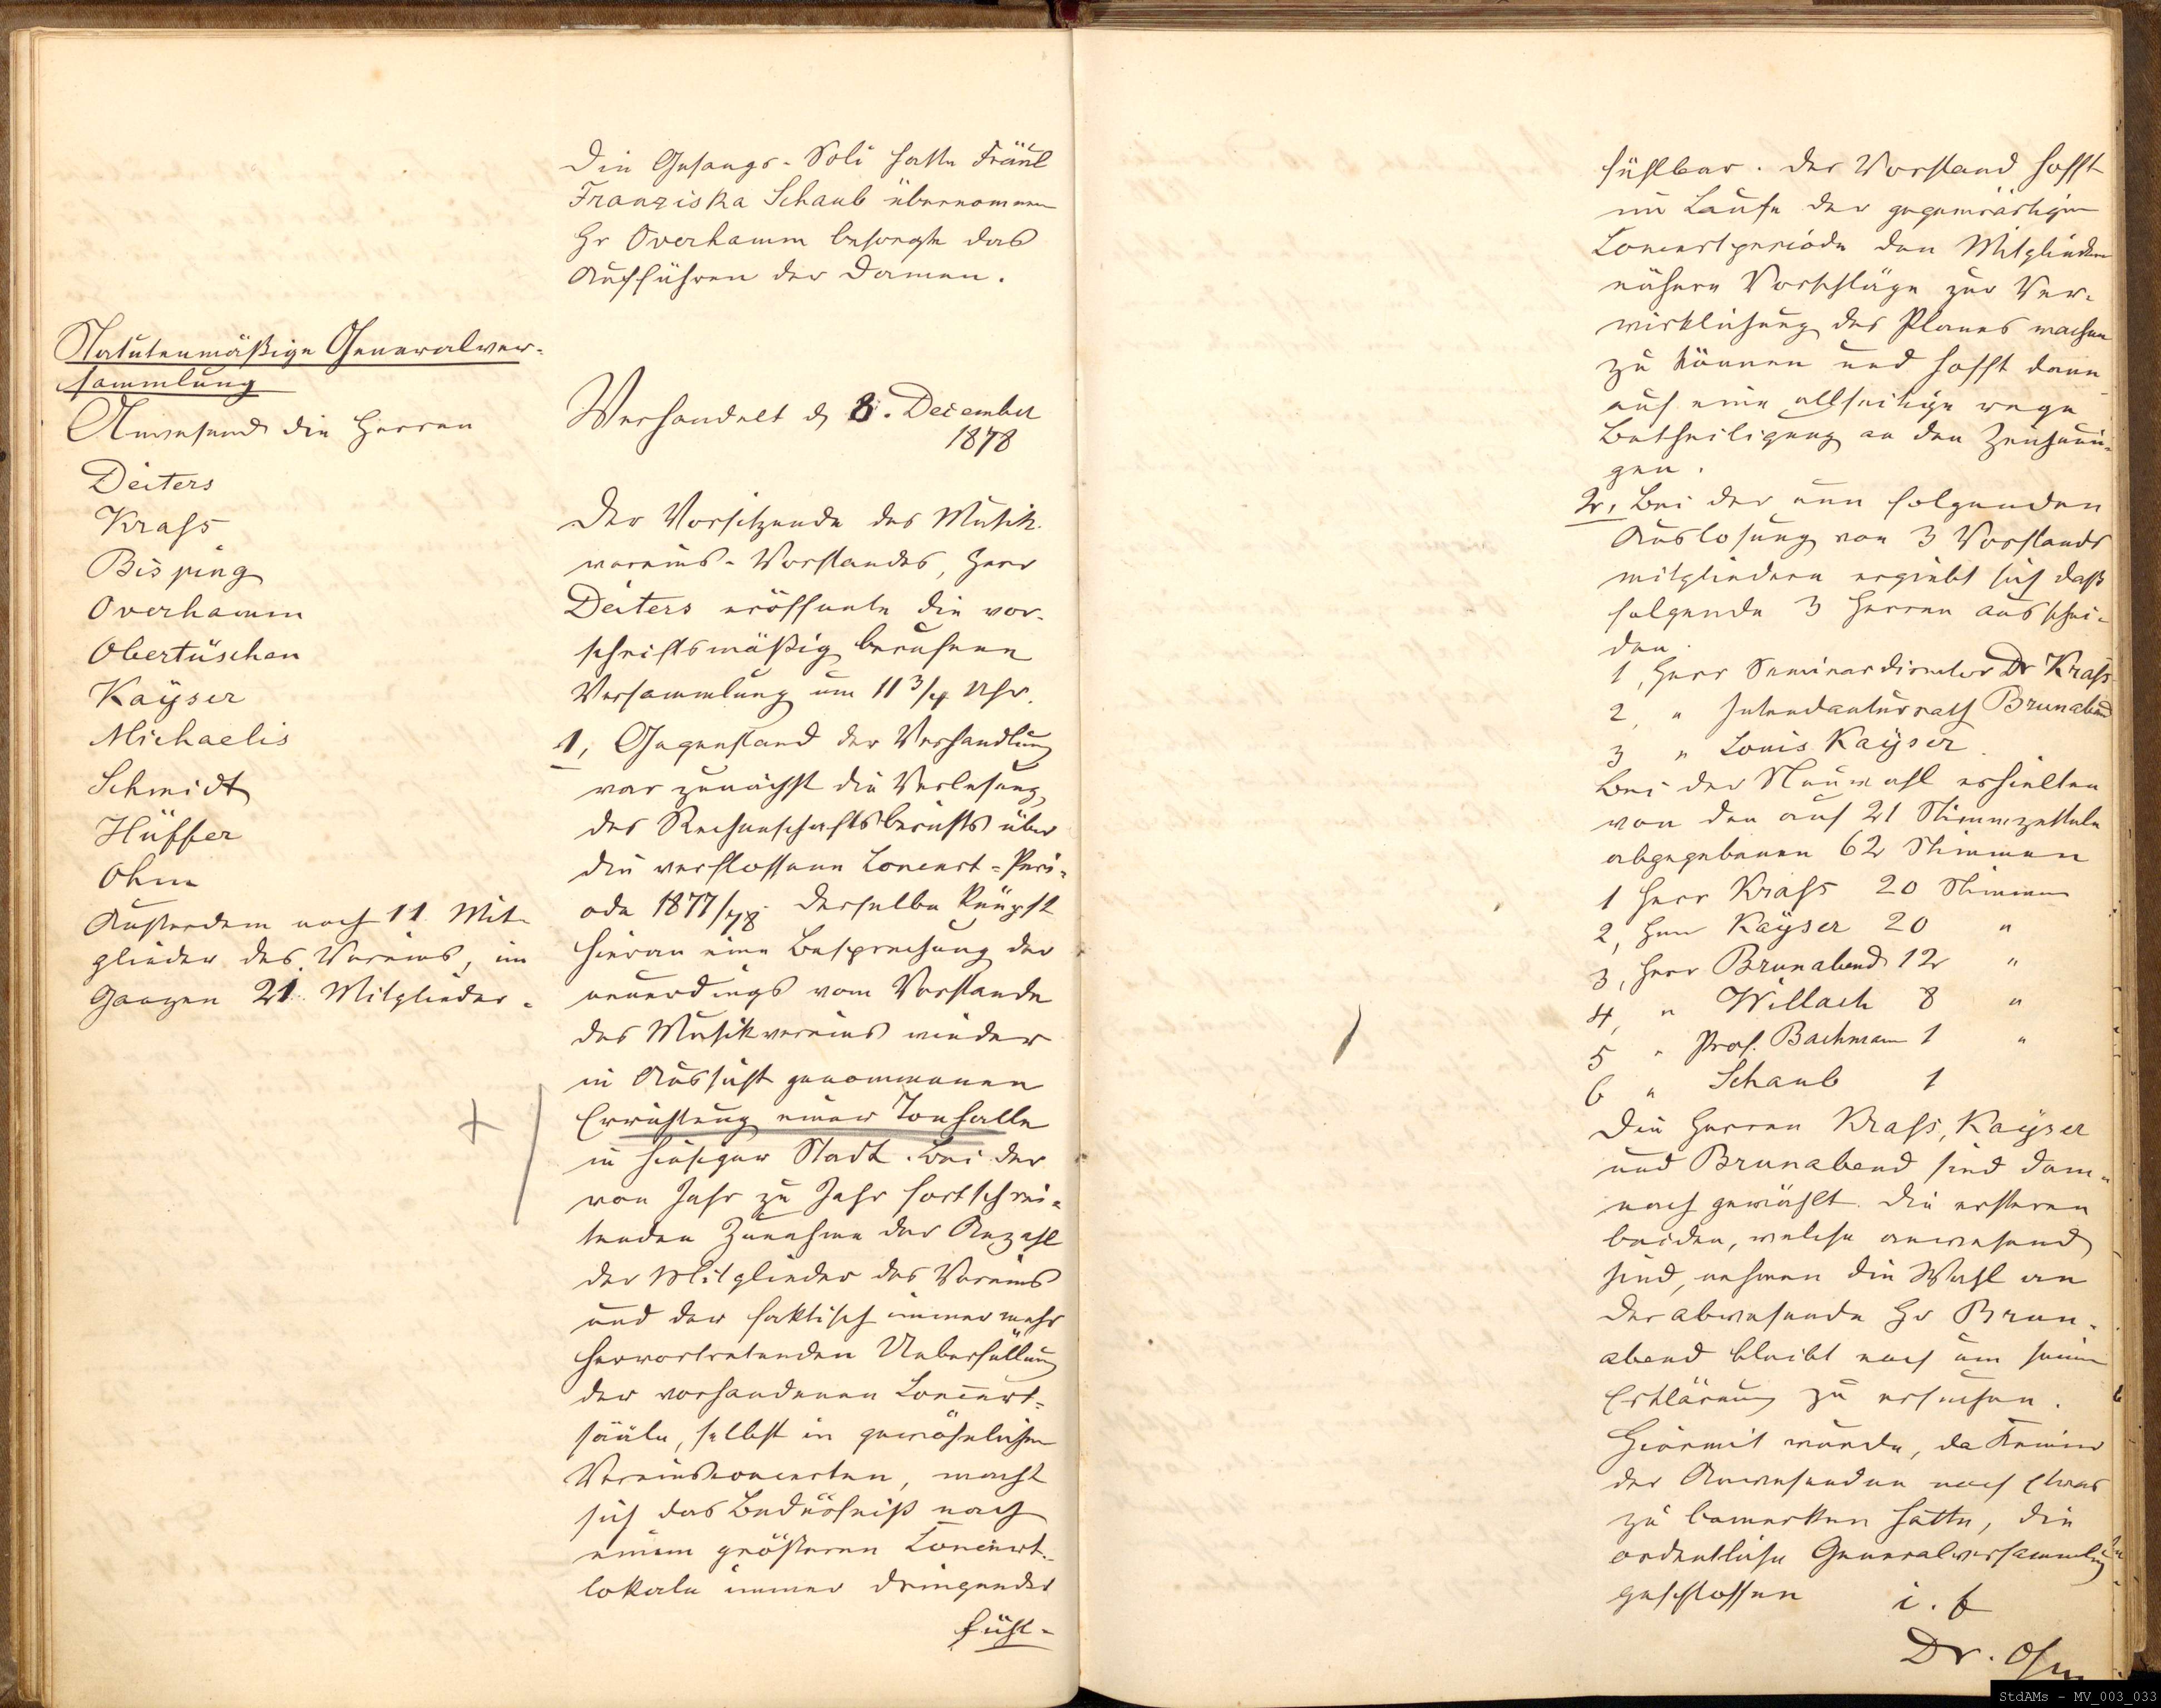 Die Gesangs-Soli hatte Fräul
Franziska Schaub übernommen
Hr Overhamm besorgte das
Aufführen der Damen.
Statutenmäßige Generalver-
sammlung
Anwesend die Herren
Deiters
Krass
Bisping
Overhamm
Obertüschen
Kayser
Michaelis
Schmidt
Hüffer
Ohm
Außerdem noch 11 Mit-
glieder des Vereins, im
Ganzen 21 Mitglieder.
Verhandelt d. 8. December
1878
Der Vorsitzende des Musik-
vereins-Vorstandes, Herr
Deiters eröffnete die vor-
schriftsmäßig berufene
Versammlung um 11 3/4 Uhr.
1, Gegenstand der Verhandlung
war zunächst die Verlesung
des Rechenschaftsberichts über
die verflossene Concert-Peri-
ode 1877/78. Derselbe knüpft
hieran eine Besprechung der
neuerdings vom Vorstande
des Musikvereins wieder
in Aussicht genommenen
Errichtung einer Tonhalle
in hiesiger Stadt. Bei der
von Jahr zu Jahr fortschrei-
tenden Zunahme der Anzahl
der Mitglieder des Vereins
und der faktisch immer mehr
hervortretenden Ueberfüllung
der vorhandenen Concert-
sääle, selbst in gewöhnlichen
Vereinsconcerten, macht
sich das Bedürfniß nach
einem größeren Concert-
lokale immer dringender
fühl-
fühlbar. Der Vorstand hofft
im Laufe der gegenwärtigen
Concertperiode den Mitgliedern
nähere Vorschläge zur Ver-
wirklichung des Planes machen
zu können und hofft dann
auf eine allseitige rege
Betheiligung an den Zeichnun-
gen.
2, Bei der nun folgenden
Auslosung von 3 Vorstands
mitgliedern ergiebt sich daß
folgende 3 Herren ausschei-
den.
1, Herr Seminardirector Dr Krass
2, " Intendanturrath Brunabend
3 " Louis Kayser.
Bei der Neuwahl erhielten
von den auf 21 Stimmzetteln
abgegebenen 62 Stimmen
1 Herr Krass 20 Stimmen
2, Herr Kayser 20 "
3, Herr Brunabend 12 "
4, " Willach 8 "
5 " Prof. Bachmann 1 "
6 " Schaub 1
Die Herren Krass, Kayser
und Brunabend sind dem-
nach gewählt. Die ersteren
beiden, welche anwesend
sind, nehmen die Wahl an
der abwesende Hr Brun-
abend bleibt noch um seine
Erklärung zu ersuchen.
Hiermit wurde, da Keiner
der Anwesenden noch etwas
zu bemerken hatte, die
ordentliche Generalversammlung
geschlossen i. f
Dr. Ohm
StdAMs - MV_003_033